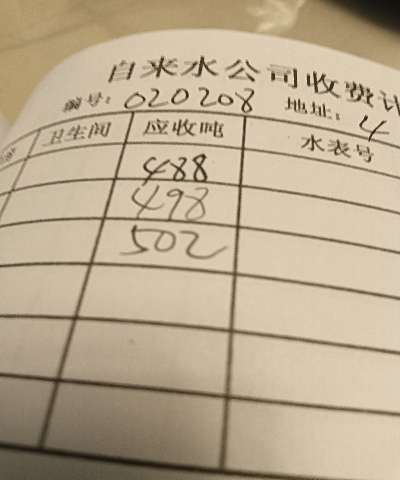 自来水公司收费
编号: 020208 地址: 4
卫生间 应收吨 水表号
488
498
502